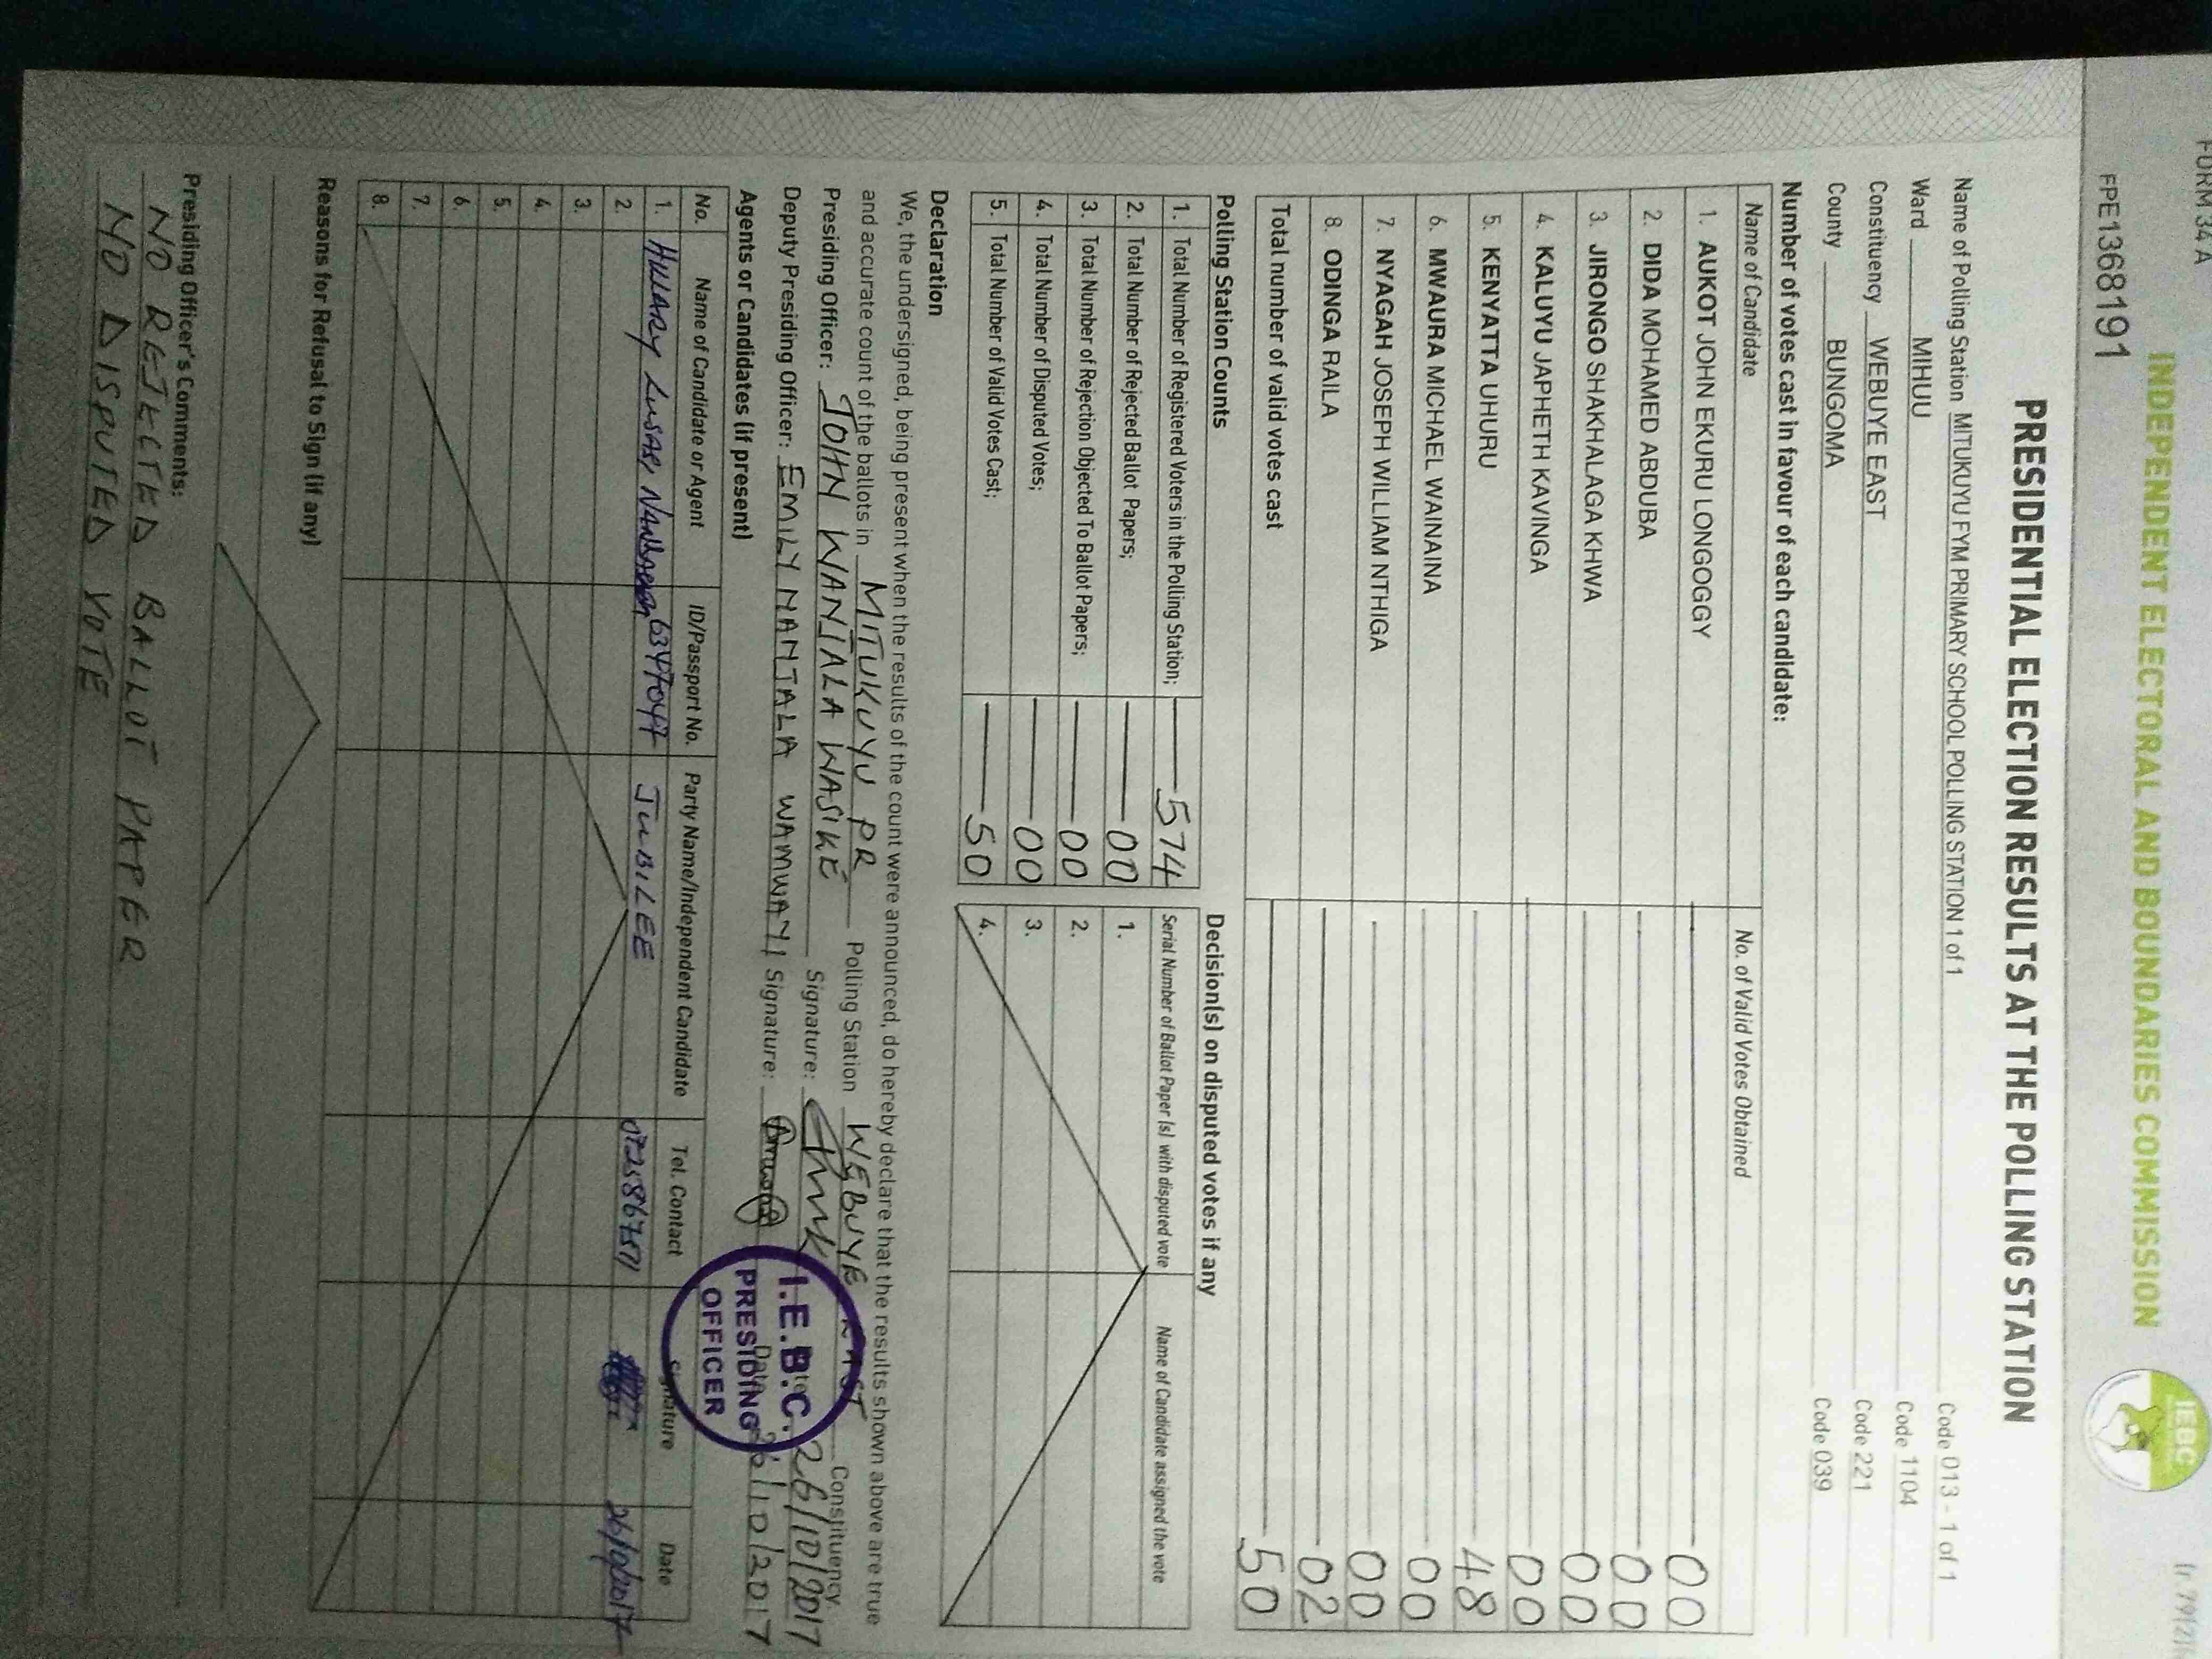 FORM 34 A
INDEPENDENT ELECTORAL AND BOUNDARIES COMMISSION
IEBC
FPE1368191
PRESIDENTIAL ELECTION RESULTS AT THE POLLING STATION
Name of Polling Station MITUKUYU FYM PRIMARY SCHOOL POLLING STATION 1 of 1 Code 013 - 1 of 1
Ward MIHUU Code 1104
Constituency WEBUYE EAST Code 221
County BUNGOMA Code 039
Number of votes cast in favour of each candidate:
Name of Candidate No. of Valid Votes Obtained
1. AUKOT JOHN EKURU LONGOGGY 00
2. DIDA MOHAMED ABDUBA 00
3. JIRONGO SHAKHALAGA KHWA 00
4. KALUYU JAPHETH KAVINGA 00
5. KENYATTA UHURU 48
6. MWAURA MICHAEL WAINAINA 00
7. NYAGAH JOSEPH WILLIAM NTHIGA 00
8. ODINGA RAILA 02
Total number of valid votes cast 50
Polling Station Counts Decision(s) on disputed votes if any
1. Total Number of Registered Voters in the Polling Station; 574 Serial Number of Ballot Paper (s) with disputed vote Name of Candidate assigned the vote
2. Total Number of Rejected Ballot Papers; 00 1.
3. Total Number of Rejection Objected To Ballot Papers; 00 2.
4. Total Number of Disputed Votes; 00 3.
5. Total Number of Valid Votes Cast; 50 4.
Declaration
We, the undersigned, being present when the results of the count were announced, do hereby declare that the results shown above are true
and accurate count of the ballots in MITUKUYU PR Polling Station WEBUYE EAST Constituency.
Presiding Officer: JOHN WANJALA WASIKE Signature: Date 26/10/2017
Deputy Presiding Officer: EMILY NANJALA WAMWAYI Signature: Date 26/10/2017
I.E.B.C.
PRESIDING
OFFICER
Agents or Candidates (if present)
No. Name of Candidate or Agent ID/Passport No. Party Name/Independent Candidate Tel. Contact Signature Date
1. HILLARY JUBILEE 26/10/2017
2.
3.
4.
5.
6.
7.
8.
Reasons for Refusal to Sign (if any)
Presiding Officer's Comments:
NO REJECTED BALLOT PAPER
NO DISPUTED VOTE